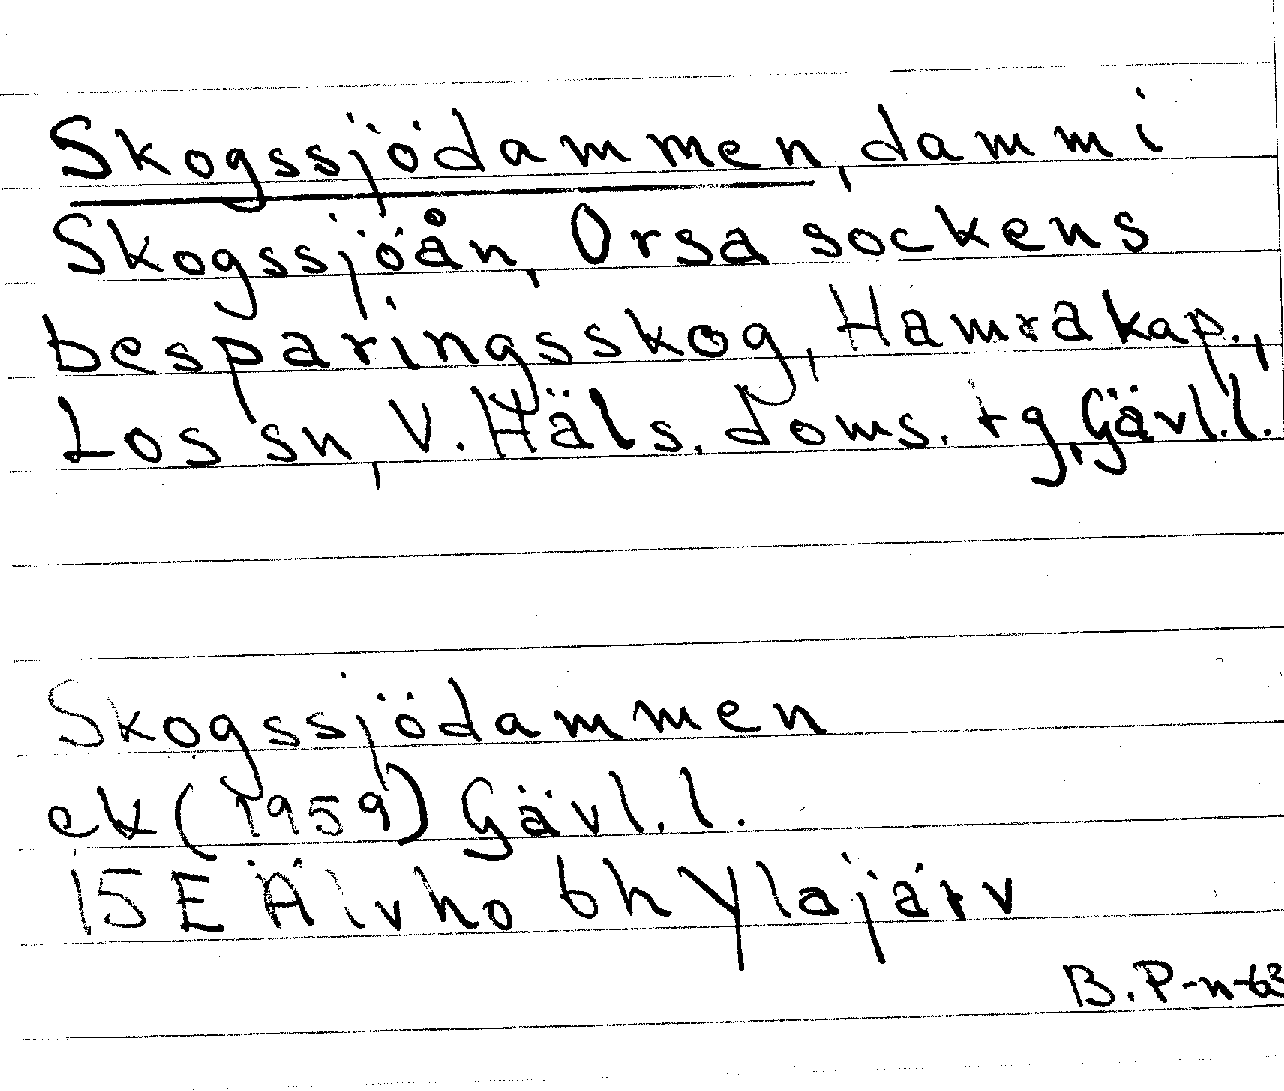 Skogssjödammen, damm i
Skogssjöån, Orsa sockens
besparingsskog, Hamra kap.,
Los sn, V. Häls. doms. tg, Gävl.l.
Skogssjödammen
ek (1959) Gävl. l.
15 E Älvho 6h Ylajärv
B. P-n-63